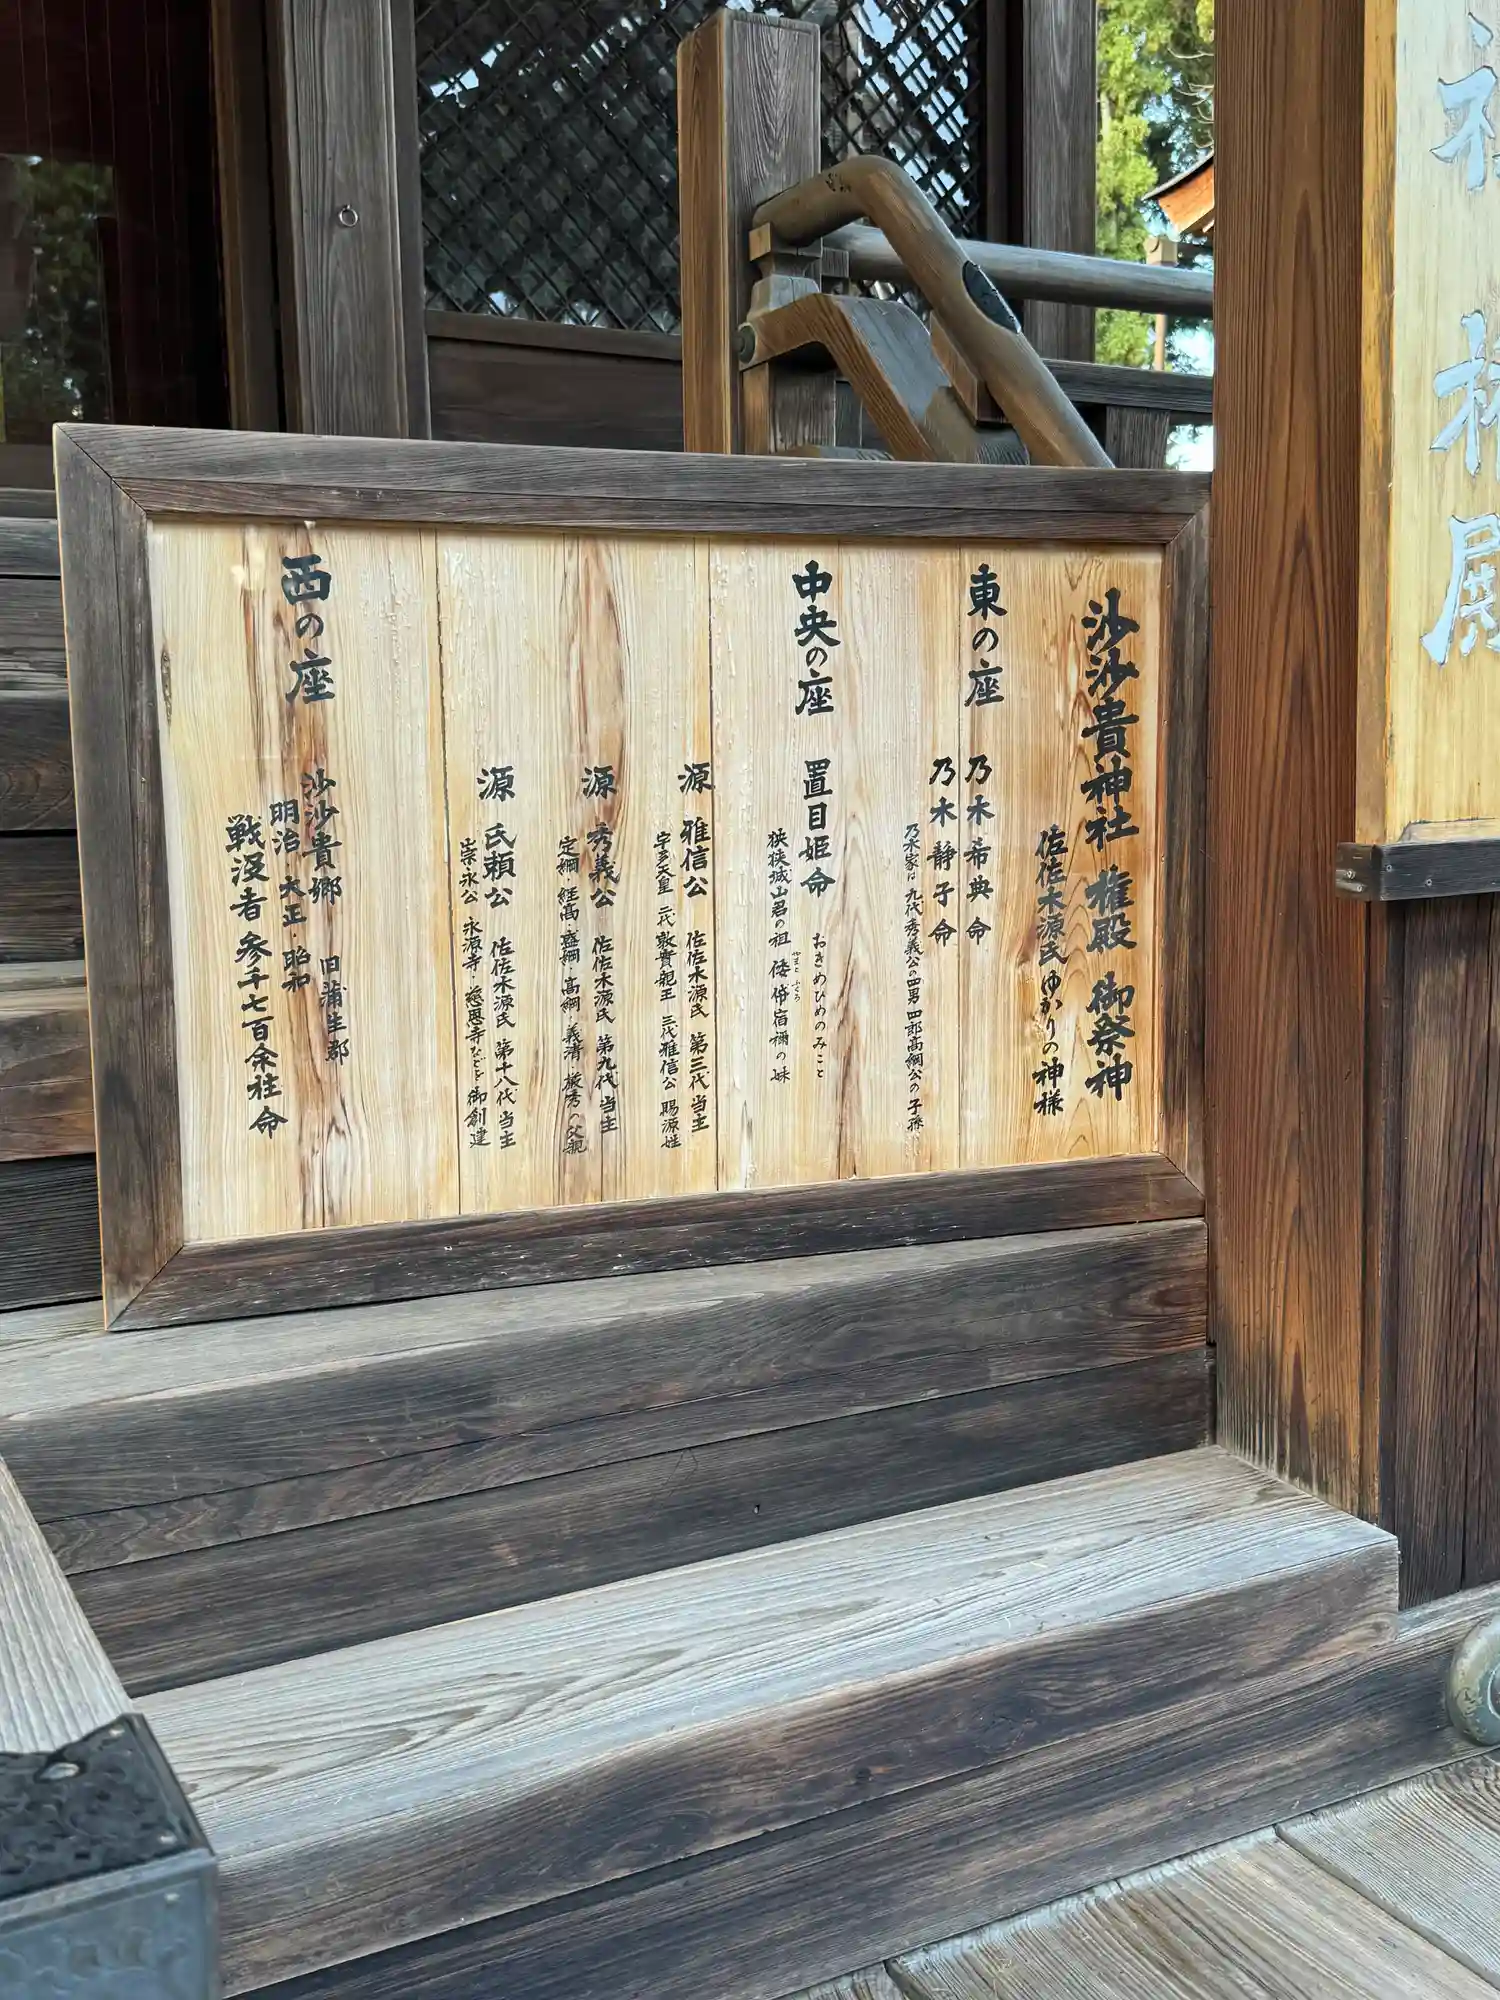 沙沙貴神社 権殿 御祭神
佐佐木源氏ゆかりの神様
東の座
乃木希典命
乃木静子命
乃木家は九代秀義公の四男 四郎高綱公の子孫
中央の座
置目姫命
おきめひめのみこと
狭狭城山君の祖 倭帒宿禰の妹
やまと ふくろ
源 雅信公 佐佐木源氏 第三代 当主
宇多天皇 二代 敦實親王 三代 雅信公 賜源姓
源 秀義公 佐佐木源氏 第九代 当主
定綱・経高・盛綱・高綱・義清・厳秀の父親
源 氏頼公 佐佐木源氏 第十八代 当主
崇永公 永源寺・慈恩寺などを御創建
西の座
沙沙貴郷 旧蒲生郡
明治・大正・昭和
戦没者 参千七百余柱命
祖
殿